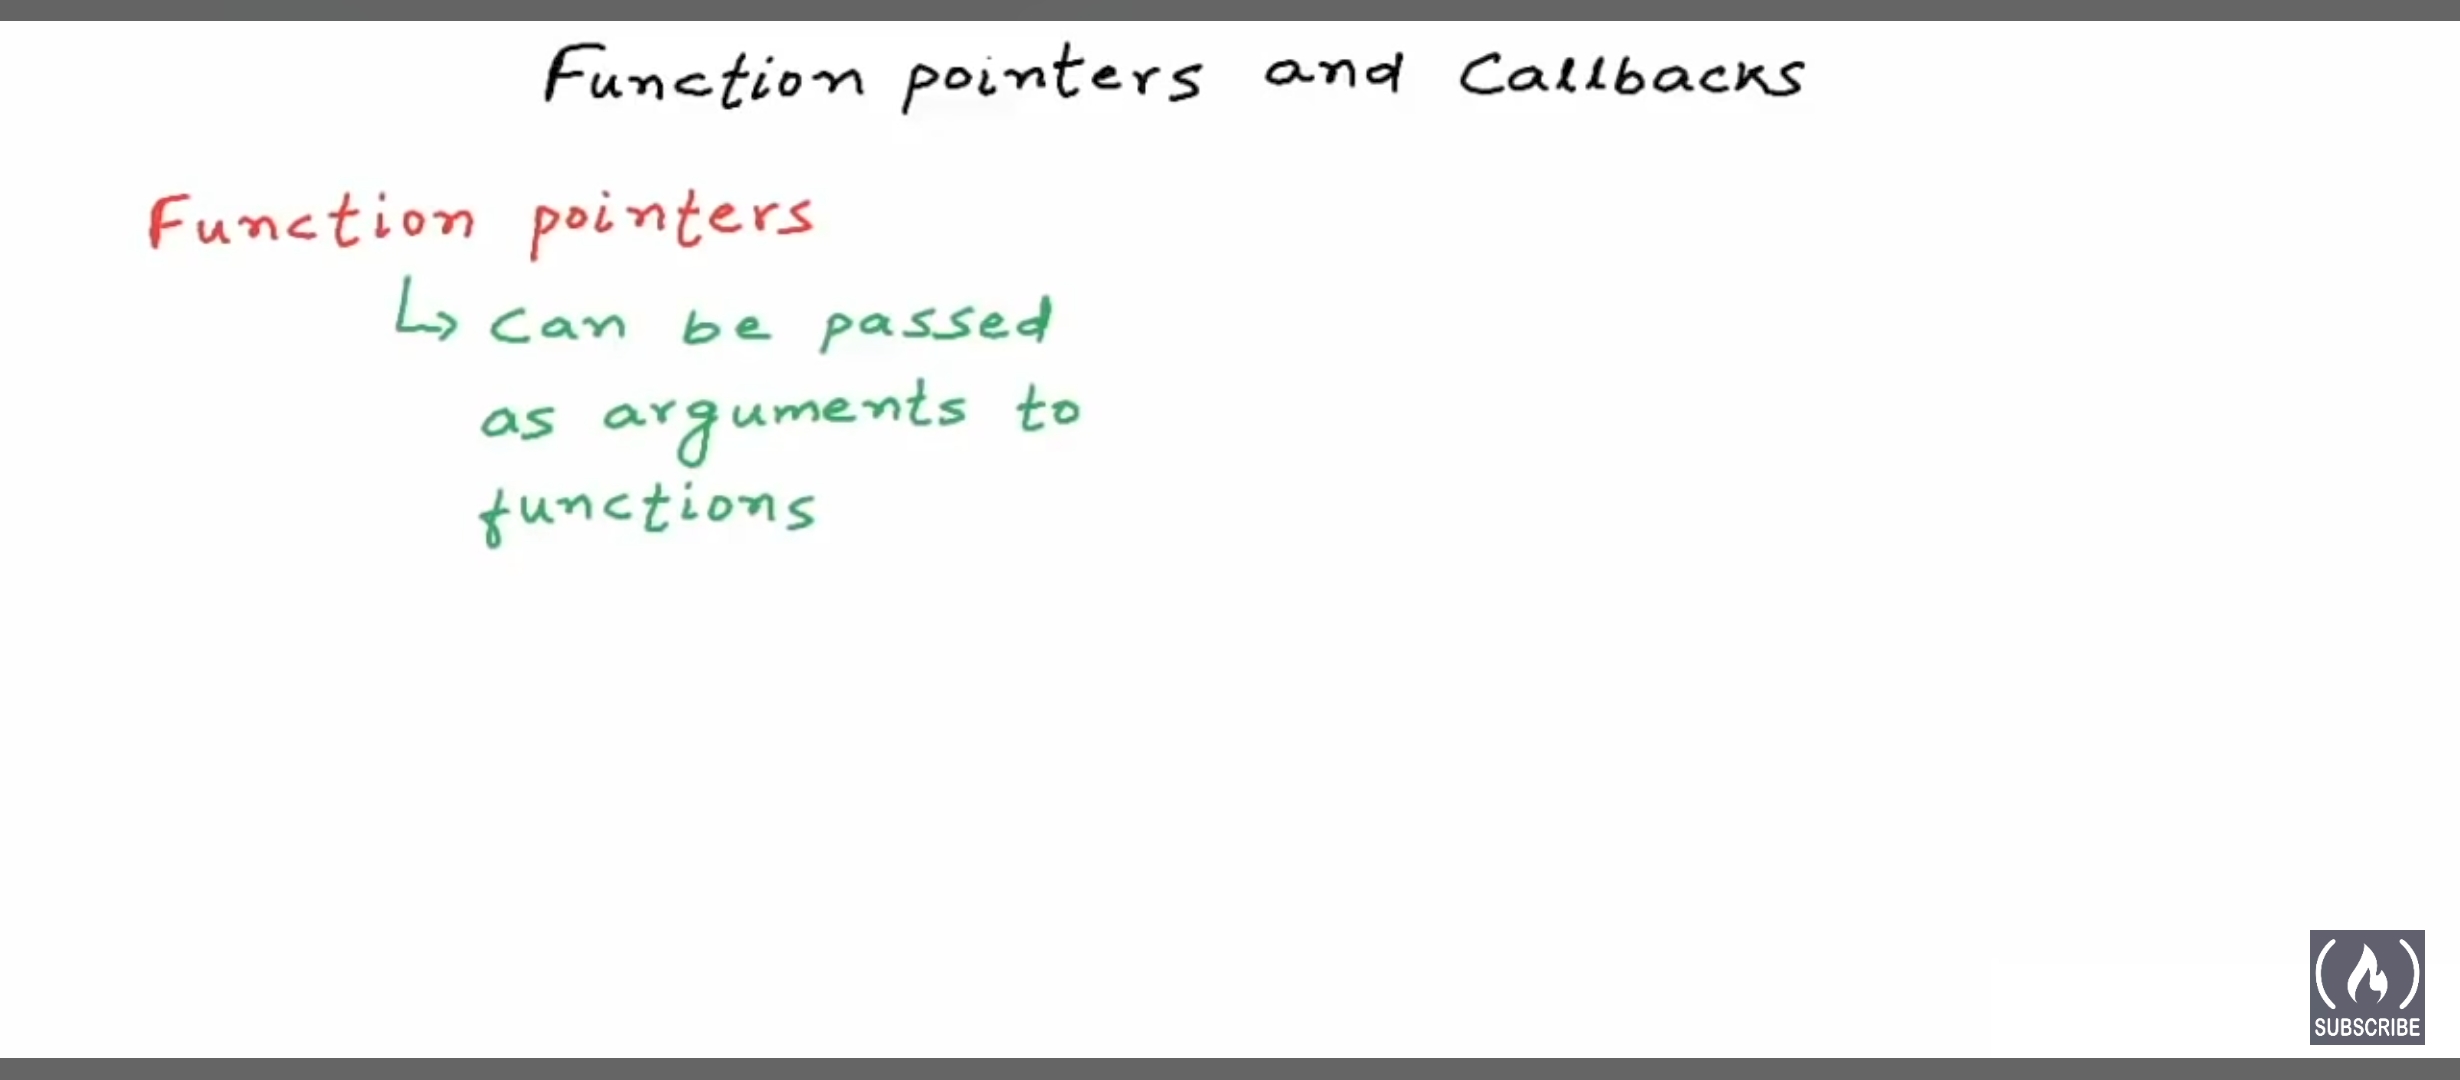 Function pointers and Callbacks
Function pointers
↳ can be passed
as arguments to
functions
SUBSCRIBE